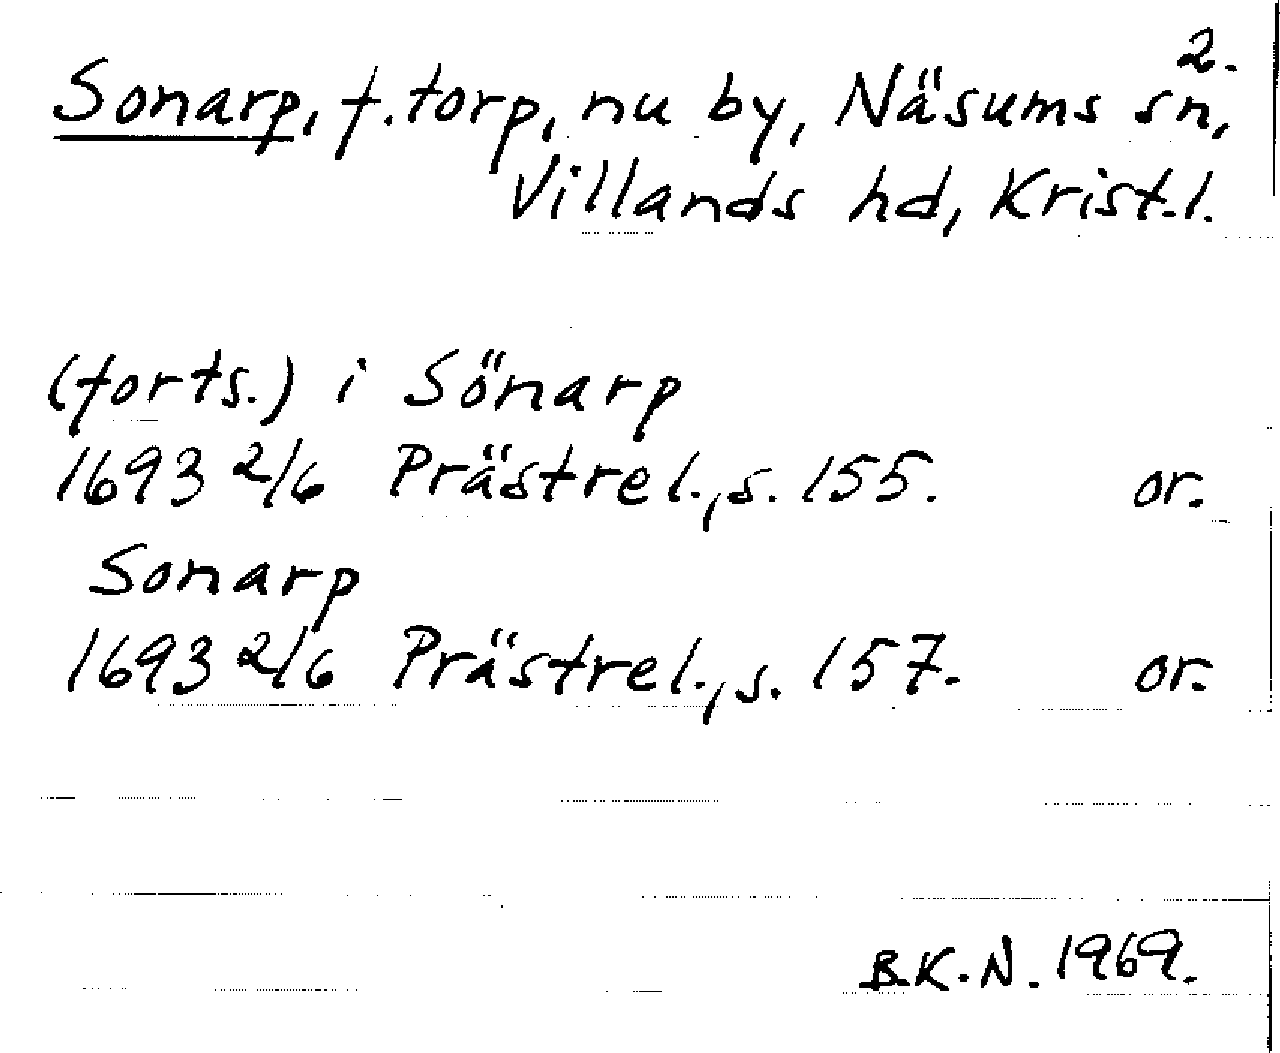 2.
Sonarp, f.torp, nu by, Näsums sn,
Villands hd, Krist.l.
(forts.) i Sönarp
1693 2/6 Prästrel., s. 155. or.
Sonarp
1693 2/6 Prästrel., s. 157. or.
B.K.N. 1969.